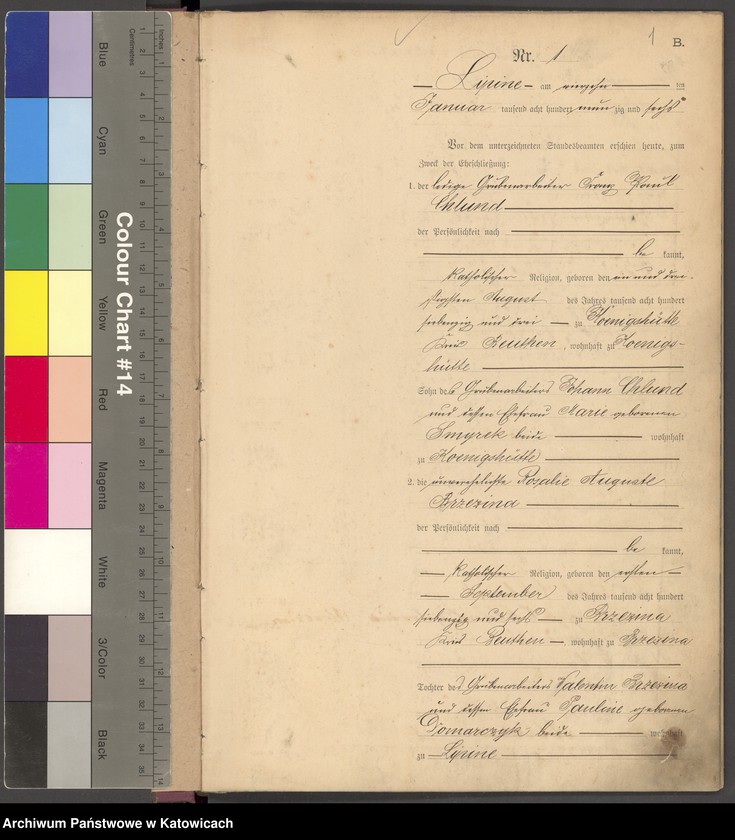 Blue
Cyan
Green
Yellow
Red
Magenta
White
3/Color
Black
Colour Chart #14
Centimetres
Inches
1
B.
Nr. 1
Lipine am ten
Januar tausend acht hundert neunzig und sechs
Vor dem unterzeichneten Standesbeamten erschien heute, zum
Zweck der Eheschließung:
1. der ledige Grubenarbeiter Franz Paul
Chlund
der Persönlichkeit nach
be kannt,
katholischer Religion, geboren den ein und drei-
ßigsten August des Jahres tausend acht hundert
siebenzig und drei zu Koenigshütte
Kreis Beuthen, wohnhaft zu Koenigs-
hütte
Sohn des Grubenarbeiters Johann Chlund
und dessen Ehefrau Marie geborenen
Smyrek beide wohnhaft
zu Koenigshütte
2. die unverehelichte Rosalie Auguste
Brzezina
der Persönlichkeit nach
be kannt,
katholischer Religion, geboren den ersten
September des Jahres tausend acht hundert
siebenzig und sechs zu Brzezina
Kreis Beuthen, wohnhaft zu Brzezina
Tochter des Grubenarbeiters Valentin Brzezina
und dessen Ehefrau Pauline geborenen
Domarczyk beide wohnhaft
zu Lipine
Archiwum Państwowe w Katowicach